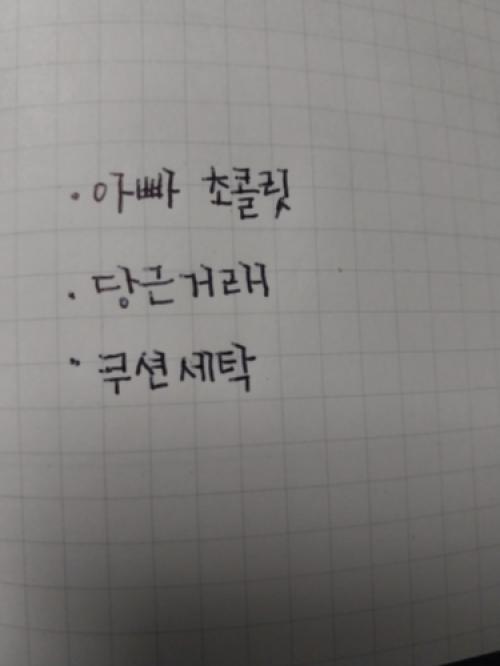 · 아빠 초콜릿
· 당근거래
· 쿠션세탁